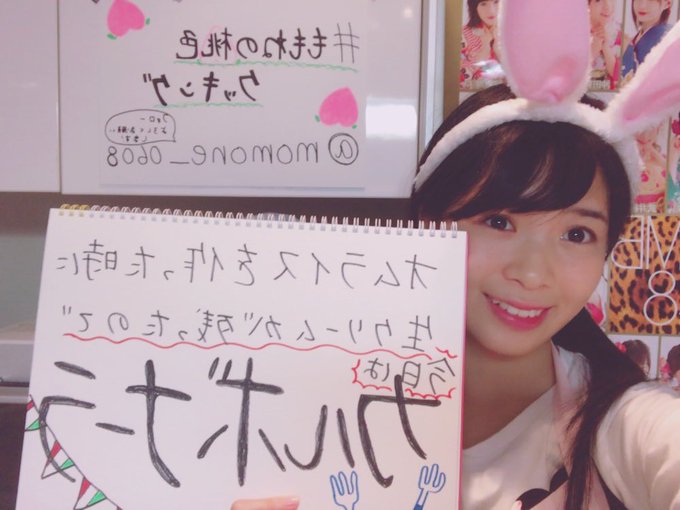 #ももねの桃色
クッキング
フォロー
よろしくお願い
します!
@momone_0608
オムライスを作った時に
生クリームが残ったので
今日は
カルボナーラ